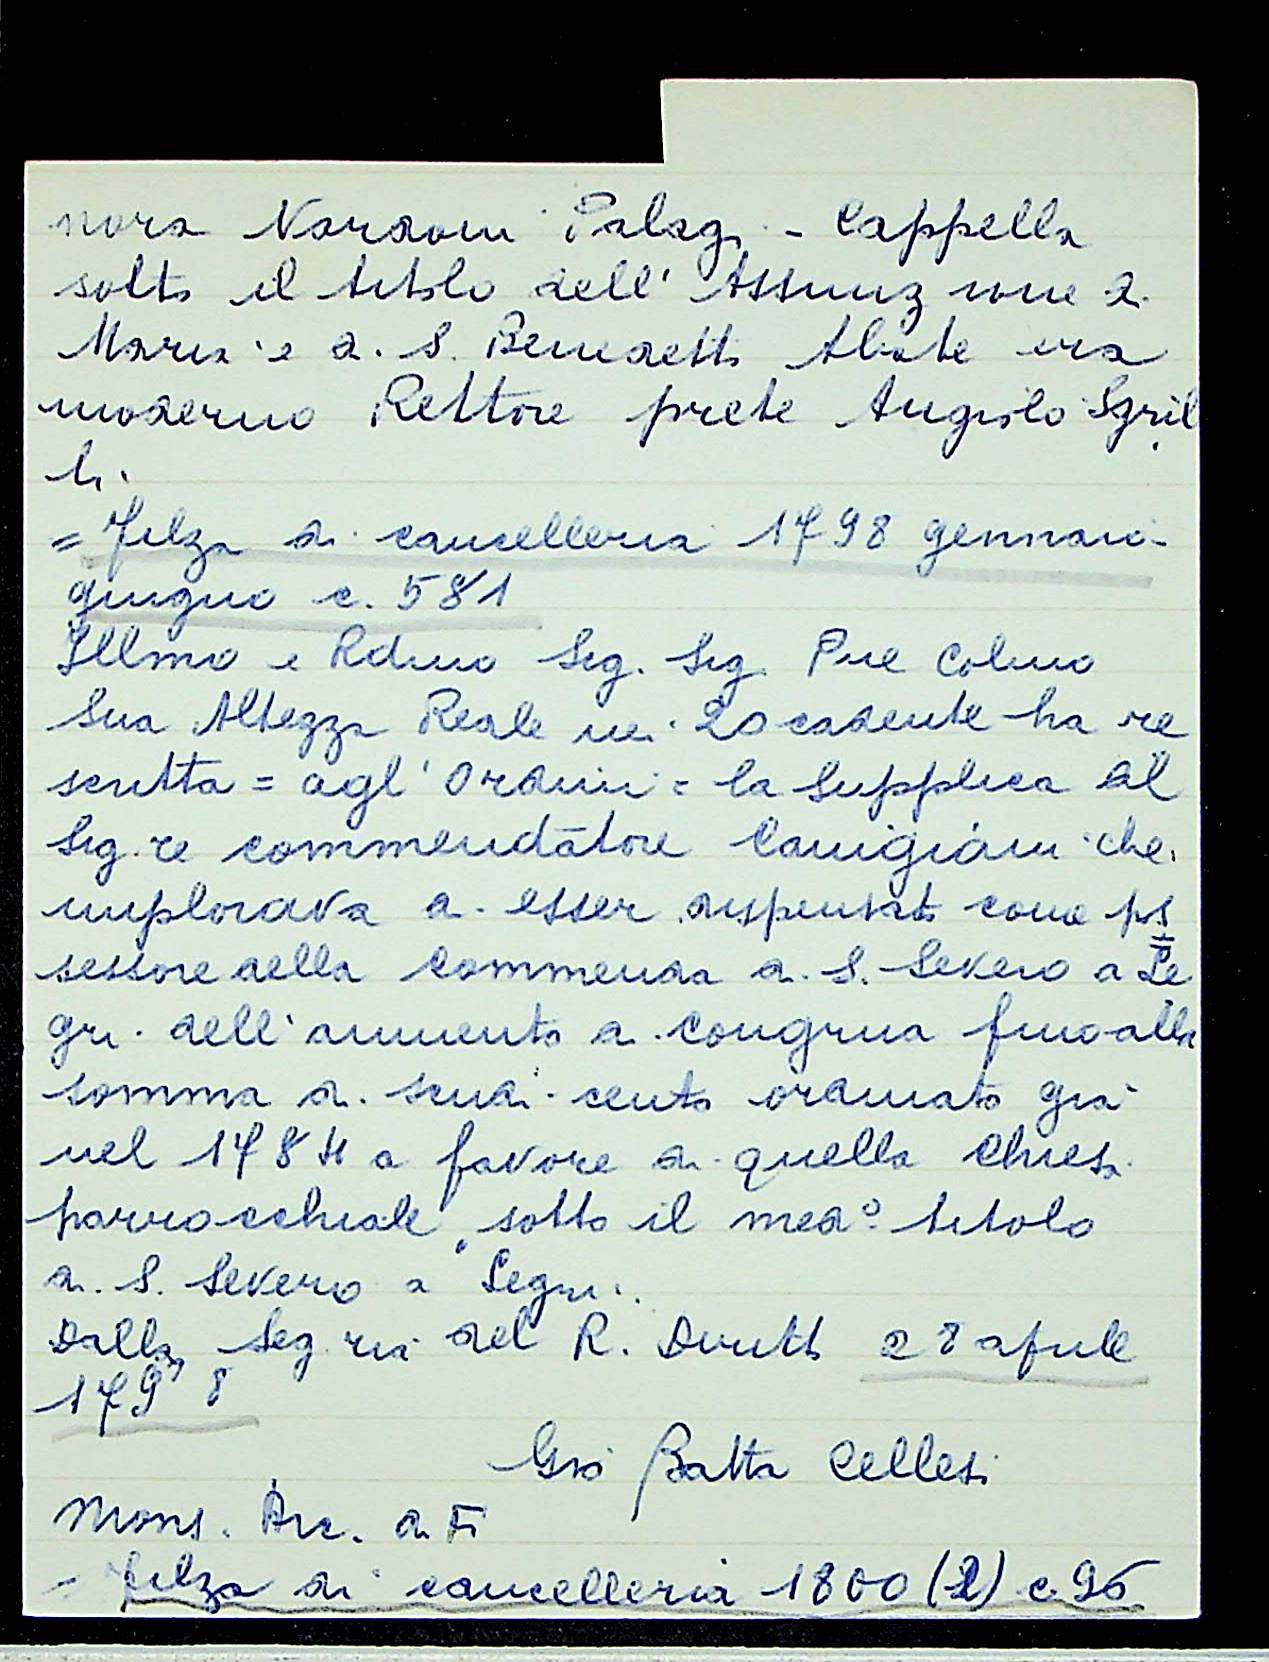 nora Nardoni Palagi - Cappella
sotto il titolo dell' Assunzione di
Maria e di S. Benedetto Abate era
moderno Rettore prete Angiolo Sgril
li.
= Filza di cancelleria 1798 gennaio-
giugno c. 581
Illmo e Rdmo Sig. Sig. Pne Colmo
Sua Altezza Reale nei 20 cadente ha re
scritta = agl' Ordini = la Supplica del
Sig.re commendatore Canigiani che
implorava di esser dispensato come pos
sessore della Commenda di S. Severo a Le
gri dell'aumento di congrua fino alla
somma di scudi cento ordinato già
nel 1784 a favore di quella Chiesa
parrocchiale sotto il medº titolo
di S. Severo a Legri.
Dalla Seg.ria del R. Diritto 28 aprile
1798
Gio Batta Cellesi
Mons. Arc. di Fi
= Filza di cancelleria 1800 (2) c 96